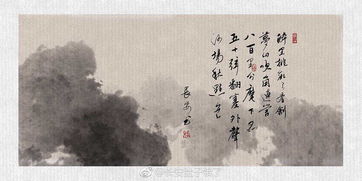 醉里挑灯看剑
梦回吹角连营
八百里分麾下炙
五十弦翻塞外聲
沙场秋點兵